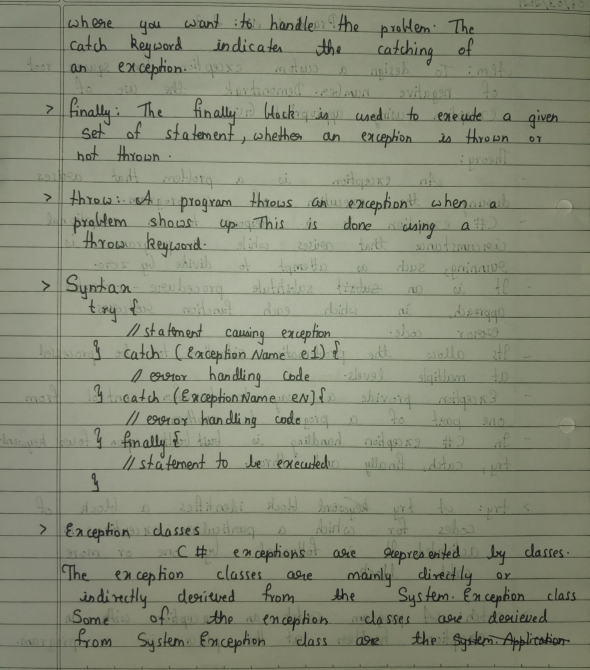 where you want to handle the problem. The
catch keyword indicates the catching of
an exception.
> finally: The finally block is used to execute a given
set of statement, whether an exception is thrown or
not thrown.
> throw: A program throws an exception when a
problem shows up. This is done using a
throw keyword.
> Syntax
try {
// statement causing exception
} catch (Exception Name e1) {
// error handling code
} catch (Exception Name eN) {
// error handling code
} finally {
// statement to be executed
}
> Exception classes
C# exceptions are represented by classes.
The exception classes are mainly directly or
indirectly derieved from the System. Exception class
Some of the exception classes are derieved
from System Exception class are the System. Application